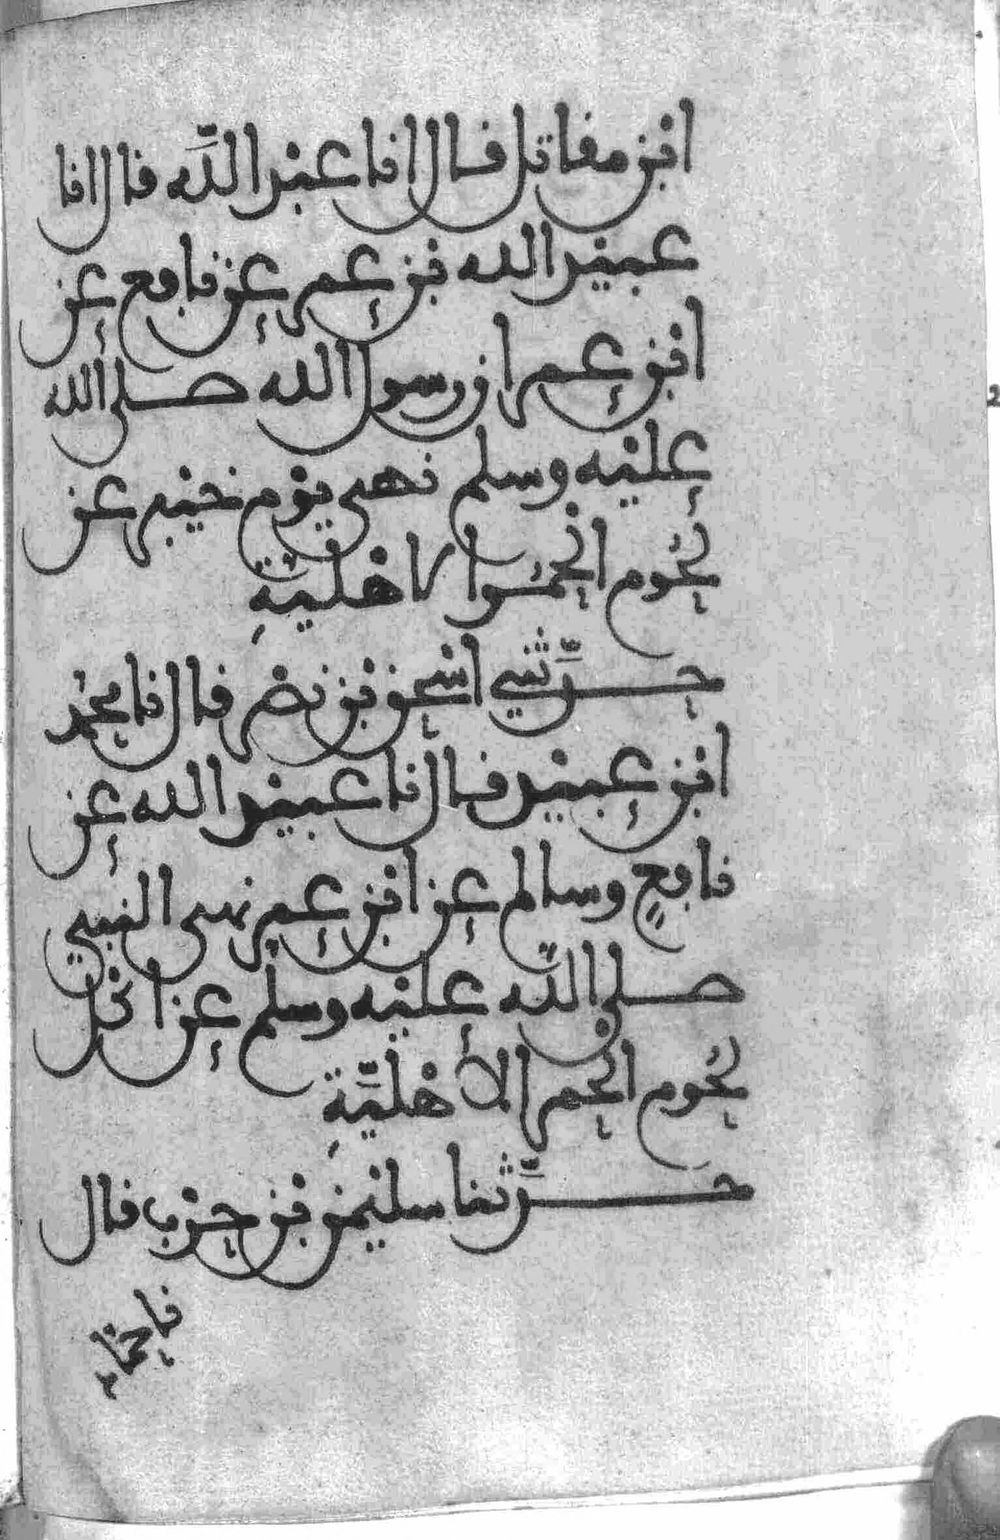 ابن مقاتل قال انا عبد الله قال انا
عبيد الله بن عمر عن نافع عن
ابن عمر ان رسول الله صلى الله
عليه وسلم نهى يوم خيبر عن
لحوم الحمر الاهلية
حدثني اسحق بن نصر قال نا محمد
ابن عبيد قال نا عبيد الله عن
نافع وسالم عن ابن عمر نهى النبي
صلى الله عليه وسلم عن اكل
لحوم الحمر الأهلية
حدثنا سليمن بن حرب قال
نا حماد